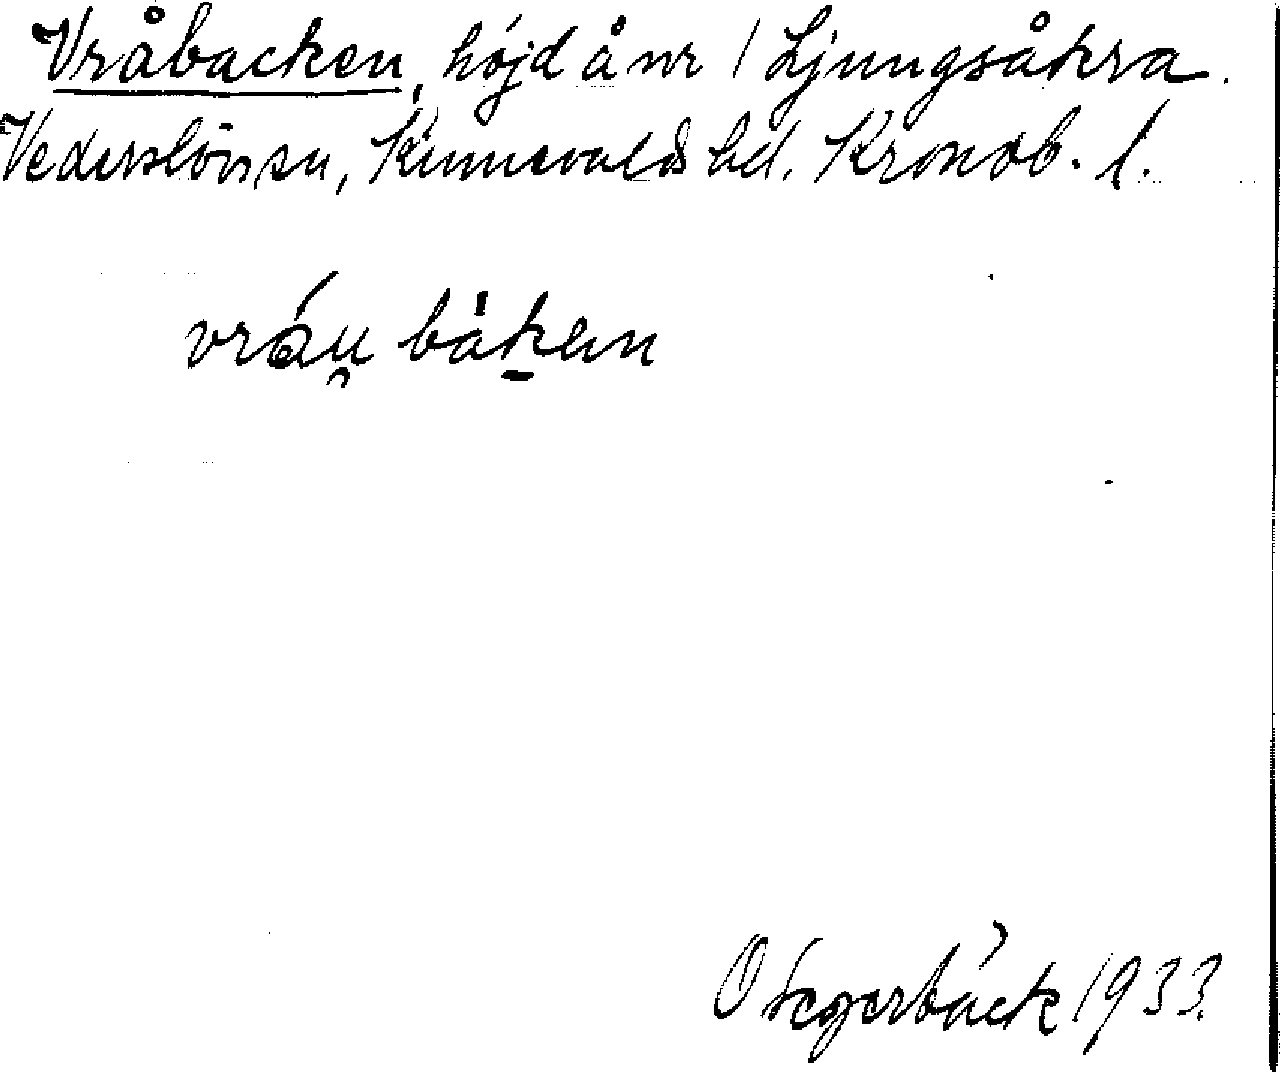 Vråbacken, höjd å nr 1 Ljungsåkra.
Vederslövs sn, Kinnevalds hd. Kronob. l.
vráu̯ bàken
O Segerbäck 1933